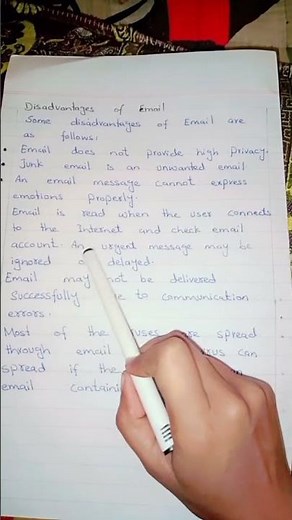 Disadvantages of Email
Some disadvantages of Email are
as follows:
• Email does not provide high privacy.
• Junk email is an unwanted email
An email message cannot express
emotions properly.
Email is read when the user connects
to the Internet and check email
account. An urgent message may be
ignored or delayed.
Email may not be delivered
Successfully to communication
errors.
Most of the are spread
through email can
spread if the
email